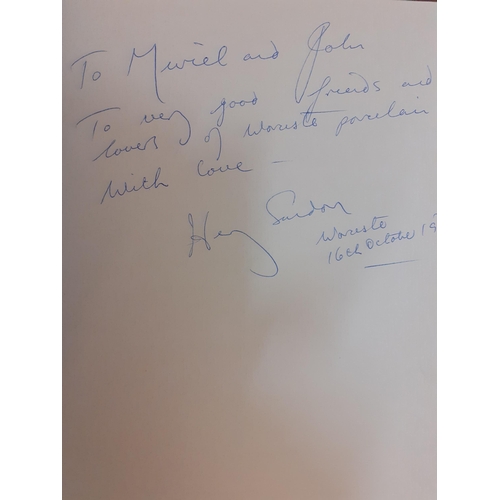 To Muriel and John
To very good friends and
lovers of Worcester porcelain
With love -
Henry Sandon
Worcester
16th October 19